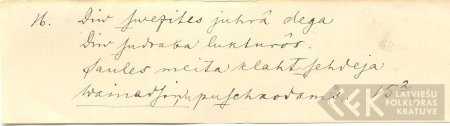 16. Diw swezites juhrâ dega
Diw sudraba lukturôs.
Saules meita klaht sehdeja
Wainadsiņu puschkodams. 15²
LATVIEŠU
FOLKLORAS
KRĀTUVE